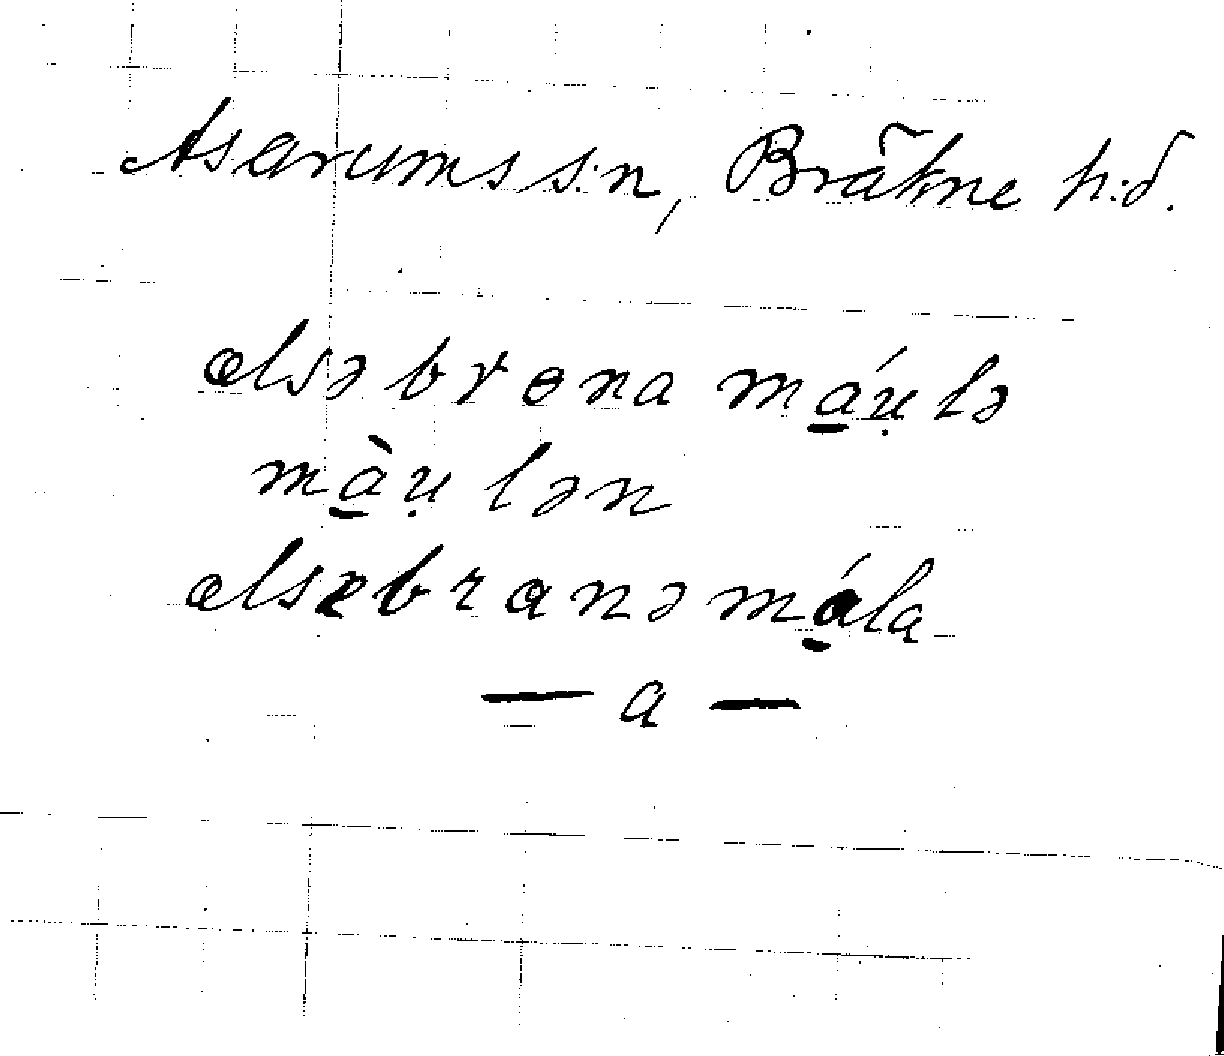 Asarums s:n, Bräkne h:d.
alsəbrona má̱ụlə
mà̱ụlən
alsebranəmá̱la
— a —